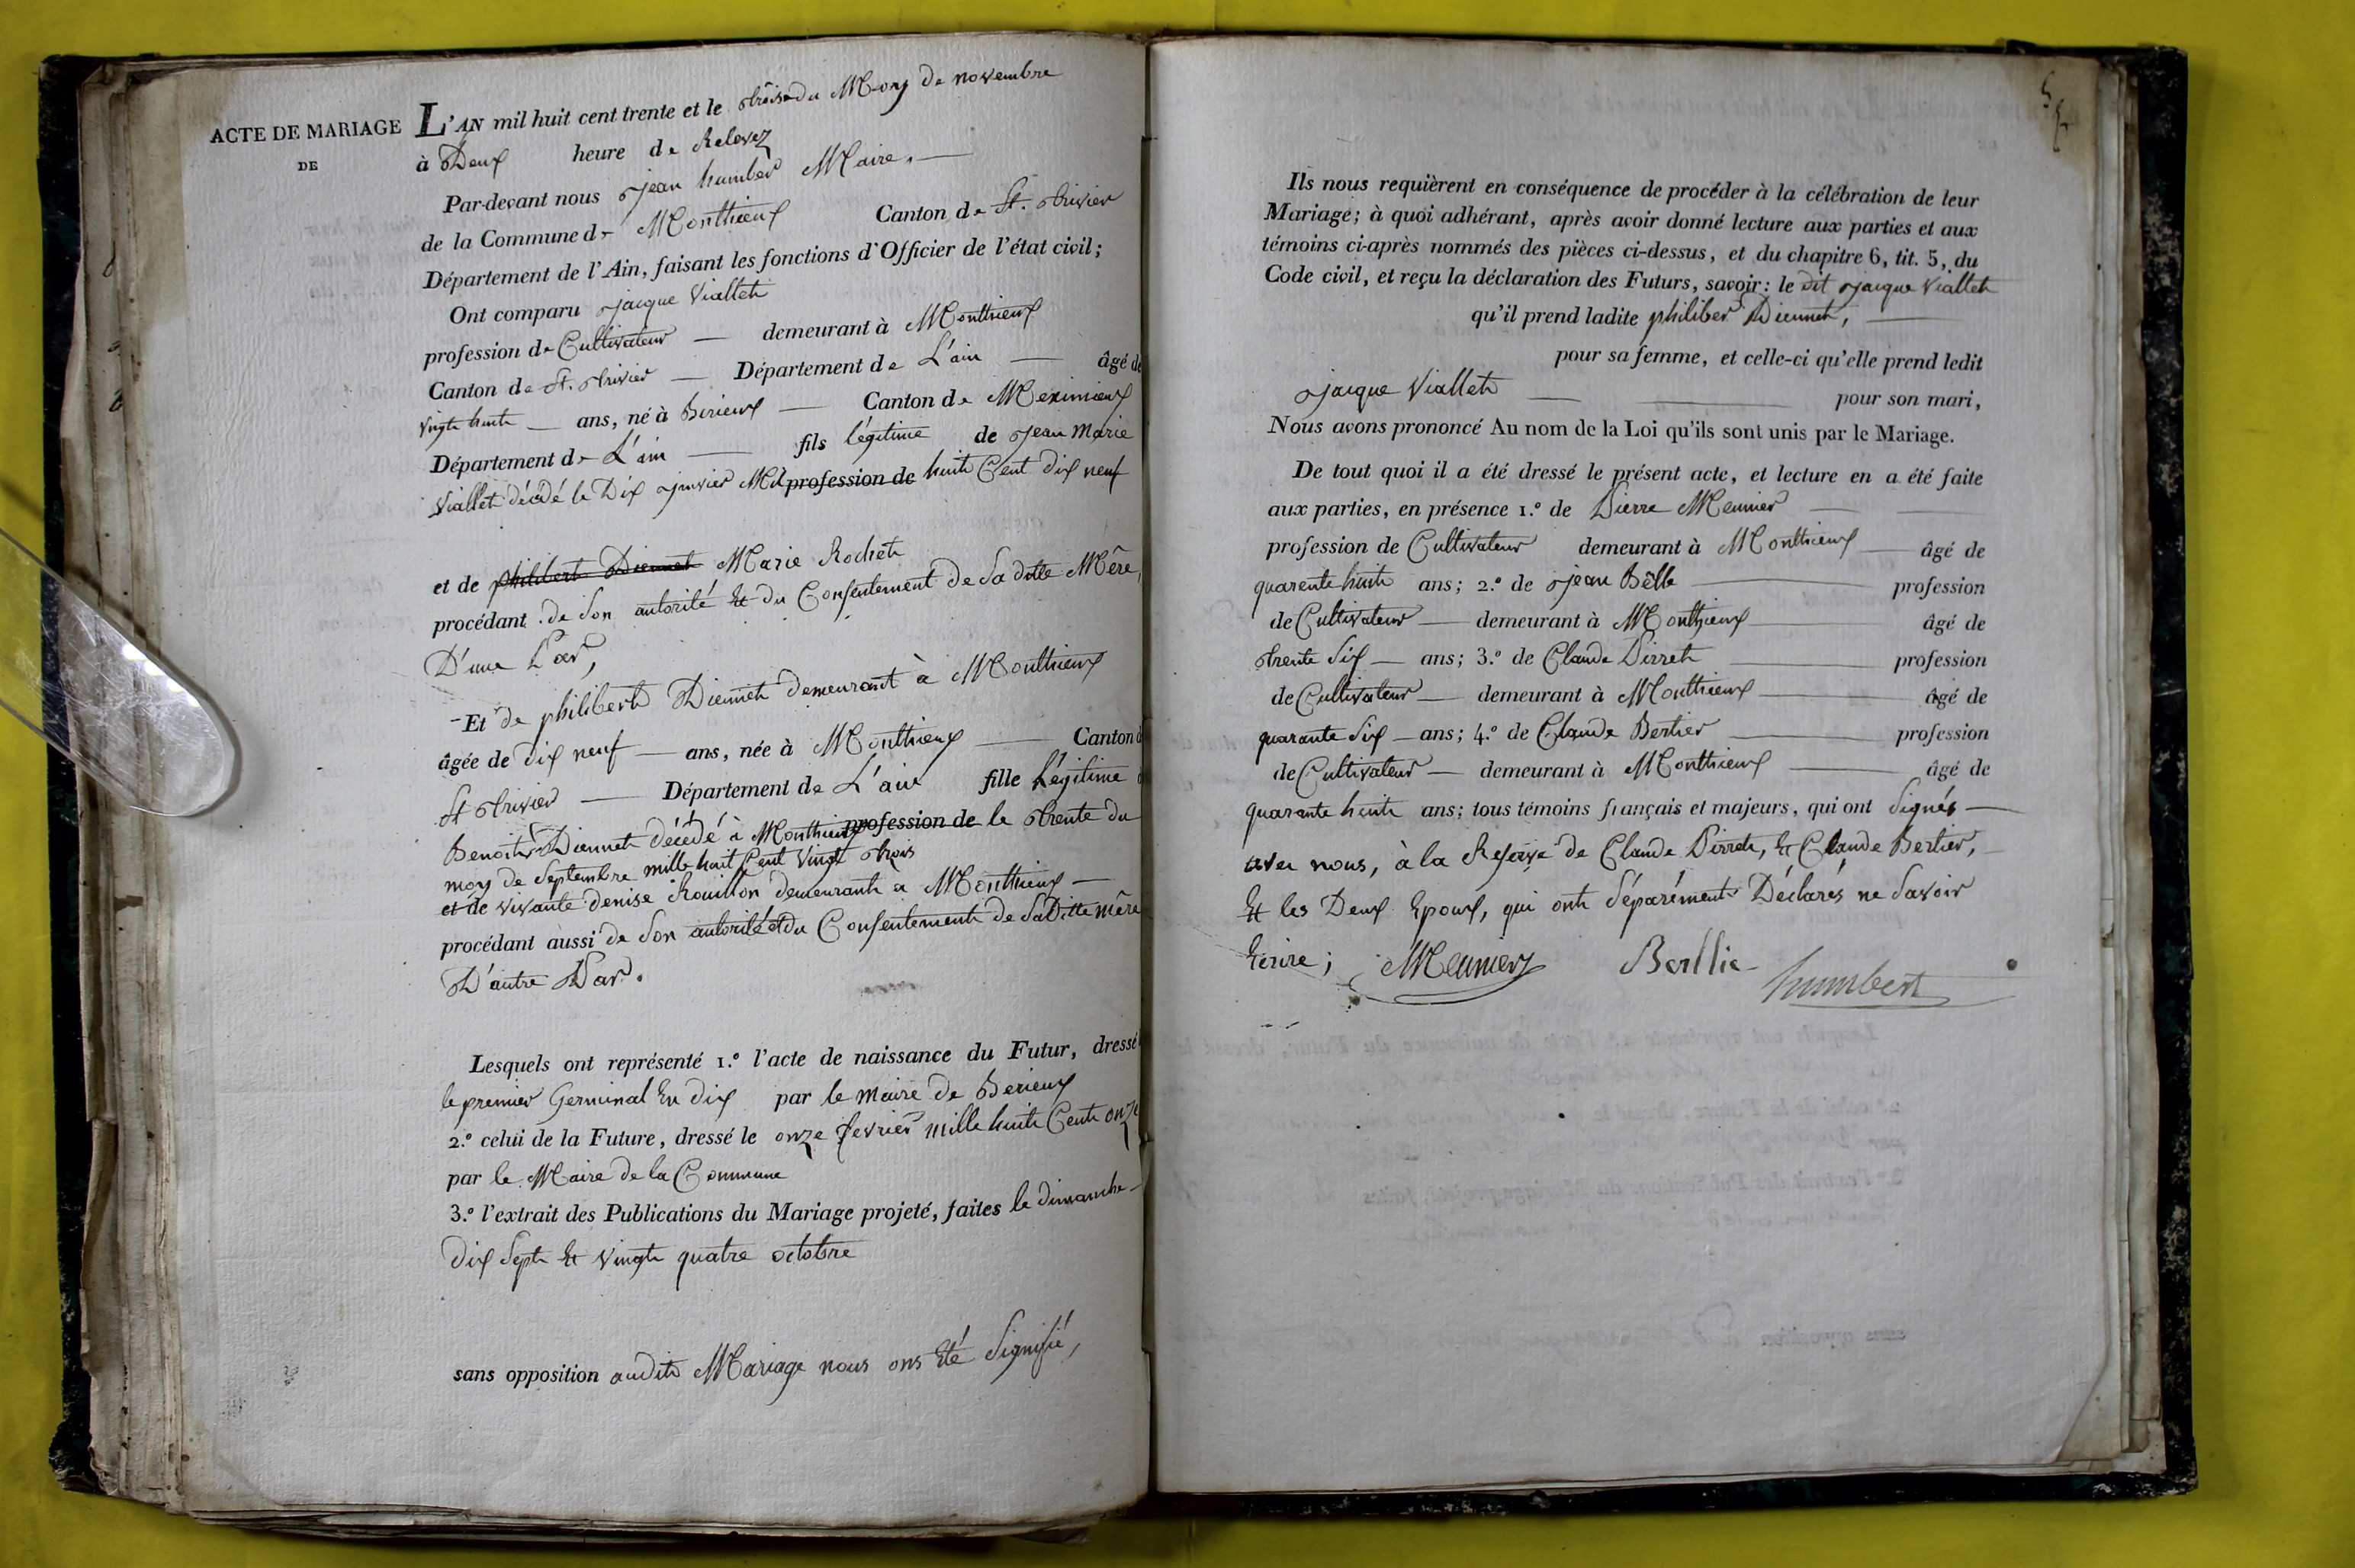 ACTE DE MARIAGE
DE
L'AN mil huit cent trente et le treise du Moy de novembre
à Deux heure de Relevez
Par-devant nous jean humber Maire.
de la Commune de Monthieux Canton de St. trivier
Département de l'Ain, faisant les fonctions d'Officier de l'état civil;
Ont comparu jacque Viallet
profession de Cultivateur demeurant à Monthieux
Canton de St. trivier Département de L'ain âgé de
vingt huit ans, né à Birieux Canton de Meximieux
Département de L'ain fils légitime de jean Marie
Viallet décédé le Dix janvier Mil profession de huit Cent dix neuf
et de philibert Diennet Marie Rochet
procédant de son autorité Et du Consentement de Sa ditte Mêre,
D'une Par,
Et de philibert Diennet demeurant à Monthieux
âgée de dix neuf ans, née à Monthieux Canton d
St trivier Département de L'ain fille légitime d
Benoit Diennet décédé à Monthieux profession de le trente du
moy de Septembre mille huit Cent Vingt trois
et de vivante denise Rouillon demeurante a Monthieux
procédant aussi de Son autorité et du Consentement de Sa Ditte mêre
D'autre Par.
Lesquels ont représenté 1.º l'acte de naissance du Futur, dressé
le premier Germinal En dix par le maire de Berieux
2.º celui de la Future, dressé le onze fevrier mille huit Cent onze
par le Maire de la Commune
3.º l'extrait des Publications du Mariage projeté, faites le dimanche
dix Sept Et Vingt quatre octobre
sans opposition audit Mariage nous ons Eté Signifié,
Ils nous requièrent en conséquence de procéder à la célébration de leur
Mariage; à quoi adhérant, après avoir donné lecture aux parties et aux
témoins ci-après nommés des pièces ci-dessus, et du chapitre 6, tit. 5, du
Code civil, et reçu la déclaration des Futurs, savoir: le dit jacque Viallet
qu'il prend ladite philiber Diennet,
pour sa femme, et celle-ci qu'elle prend ledit
jacque Viallet pour son mari,
Nous avons prononcé Au nom de la Loi qu'ils sont unis par le Mariage.
De tout quoi il a été dressé le présent acte, et lecture en a été faite
aux parties, en présence 1.º de Pierre Meunier
profession de Cultivateur demeurant à Monthieux âgé de
quarente huit ans; 2.º de jean Bêlle profession
de Cultivateur demeurant à Monthieux âgé de
trente Six ans; 3.º de Claude Pirret profession
de Cultivateur demeurant à Monthieux âgé de
quarante Six ans; 4.º de Claude Bertier profession
de Cultivateur demeurant à Monthieux âgé de
quarante huit ans; tous témoins français et majeurs, qui ont Signés
avec nous, à la Reserve de Claude Pirret, Et Claude Bertier,
Et les Deux Epoux, qui ont Séparément Déclarés ne Savoir
Ecrire; Meunier humbert